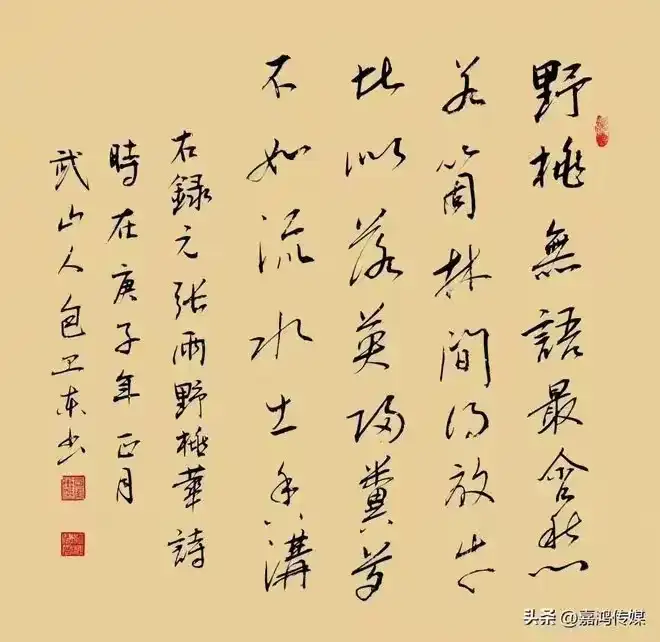 野桃無語最含愁
若箇林間得放
比似落英歸糞草
不如流水香溝
右録元张雨野桃華詩
時在庚子年正月
武山人包卫东书
头条 @嘉鸿传媒